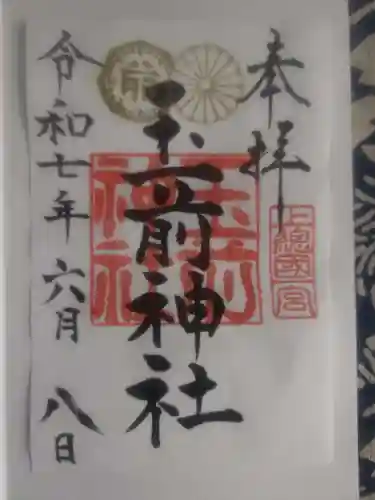 奉拝
上総国一宮
玉前神社
玉前神社
令和七年六月八日